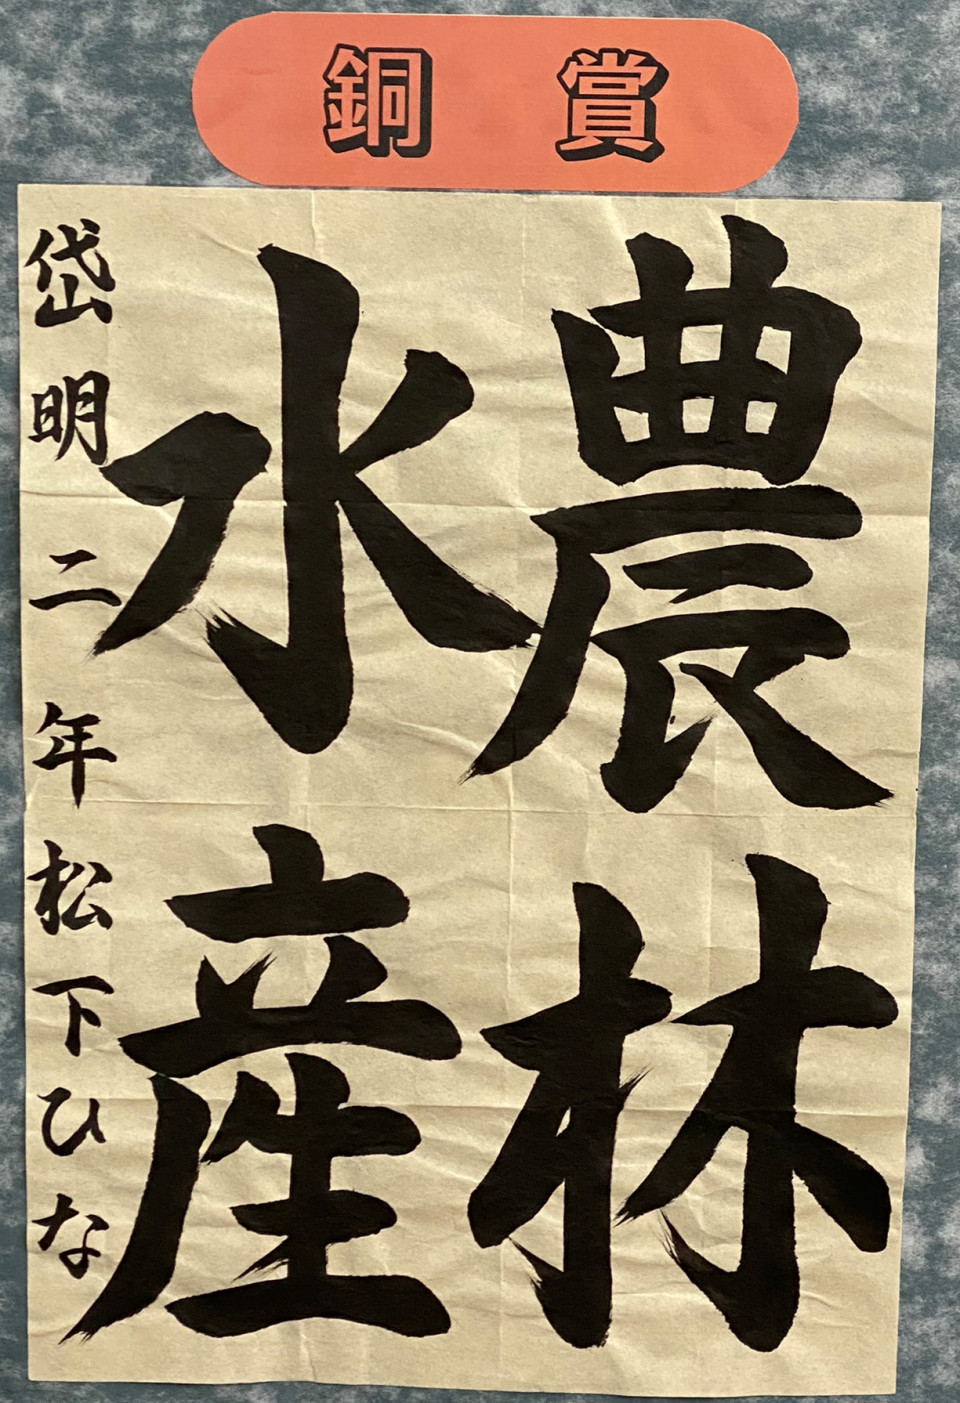 銅賞
農林
水産
岱明二年松下ひな